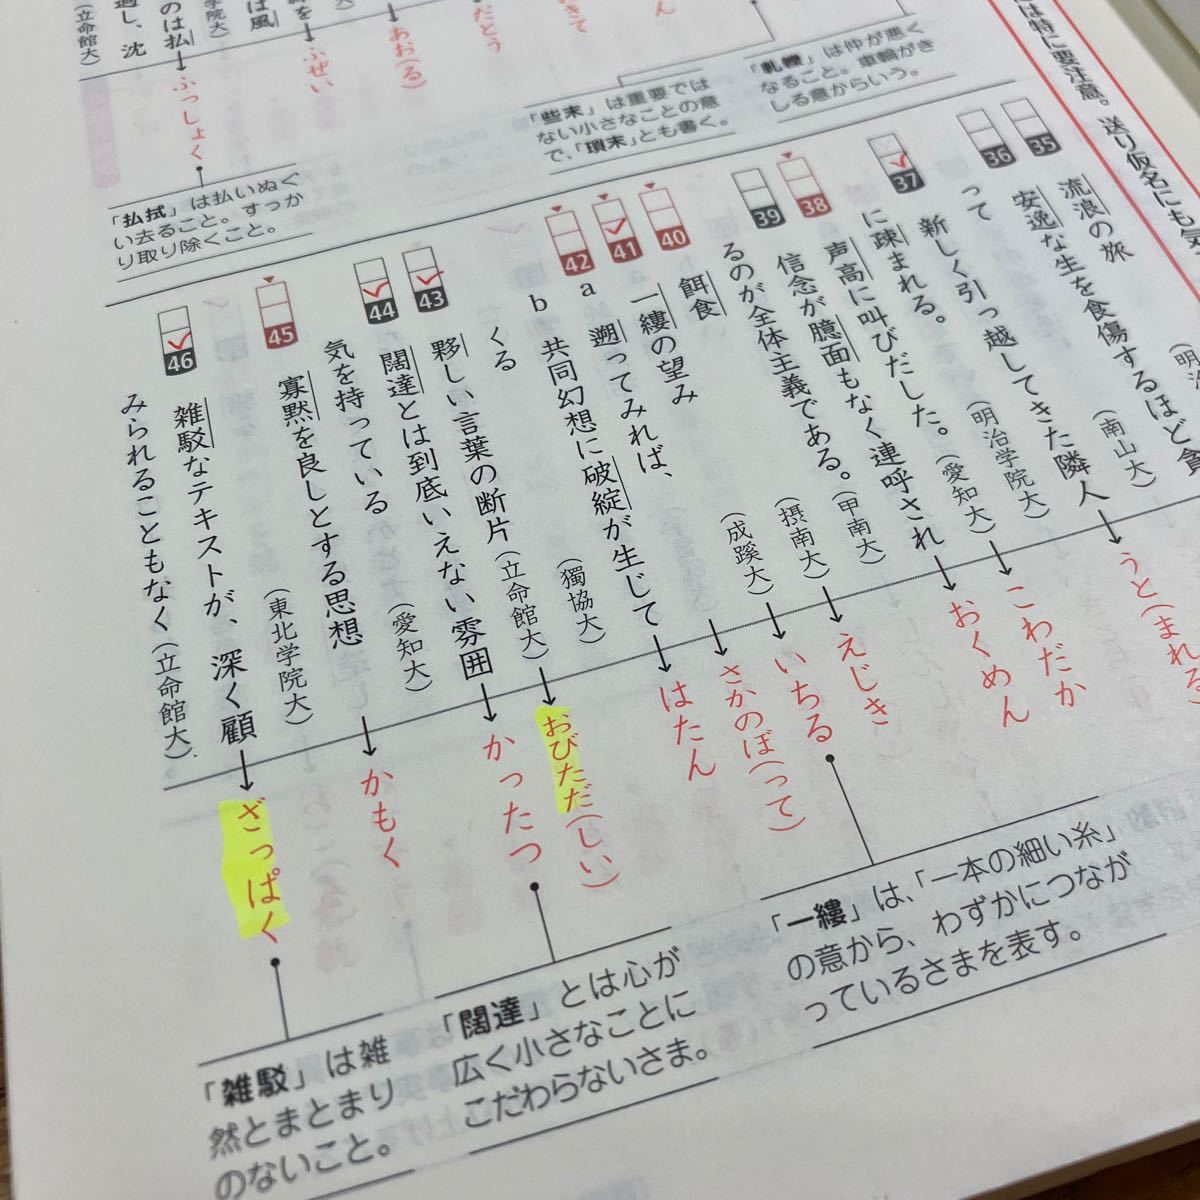 は特に要注意。送り仮名にも気
「軋轢」は仲が悪く
なること。車輪がき
しる意からいう。
「些末」は重要では
ない小さなことの意
で、「瑣末」とも書く。
だとう
あお(る)
ぶぜい
のは払
ふっしょく
過し、沈
(立命館大)
「払拭」は払いぬぐ
い去ること。すっか
り取り除くこと。
35
流浪の旅
36
安逸な生を食傷するほど貪
って
(南山大)
(明治学院大)
37
新しく引っ越してきた隣人
に疎まれる。
(愛知大)
うと(まれる)
38
声高に叫びだした。
(甲南大)
こわだか
39
信念が臆面もなく連呼され
るのが全体主義である。
(摂南大)
おくめん
40
餌食
(成蹊大)
えじき
41
一縷の望み
いちる
42
a
遡ってみれば、
さかのぼ(って)
b
共同幻想に破綻が生じて
くる
(獨協大)
はたん
43
夥しい言葉の断片
(立命館大)
おびただ(しい)
44
闊達とは到底いえない雰囲
気を持っている
(愛知大)
かったつ
45
寡黙を良しとする思想
(東北学院大)
かもく
46
雑駁なテキストが、深く顧
みられることもなく
(立命館大)
ざっぱく
「一縷」は、「一本の細い糸」
の意から、わずかにつなが
っているさまを表す。
「闊達」とは心が
広く小さなことに
こだわらないさま。
「雑駁」は雑
然とまとまり
のないこと。